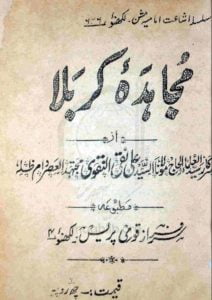 سلسلہ اشاعت امامیہ مشن۔ لکھنؤ
مجاہدۂ کربلا
از
سید العلماء الحاج مولانا السید علی نقی النقوی مجتہد العصر دام ظلہ
مطبوعہ
سرفراز قومی پریس۔ لکھنؤ
قیمت